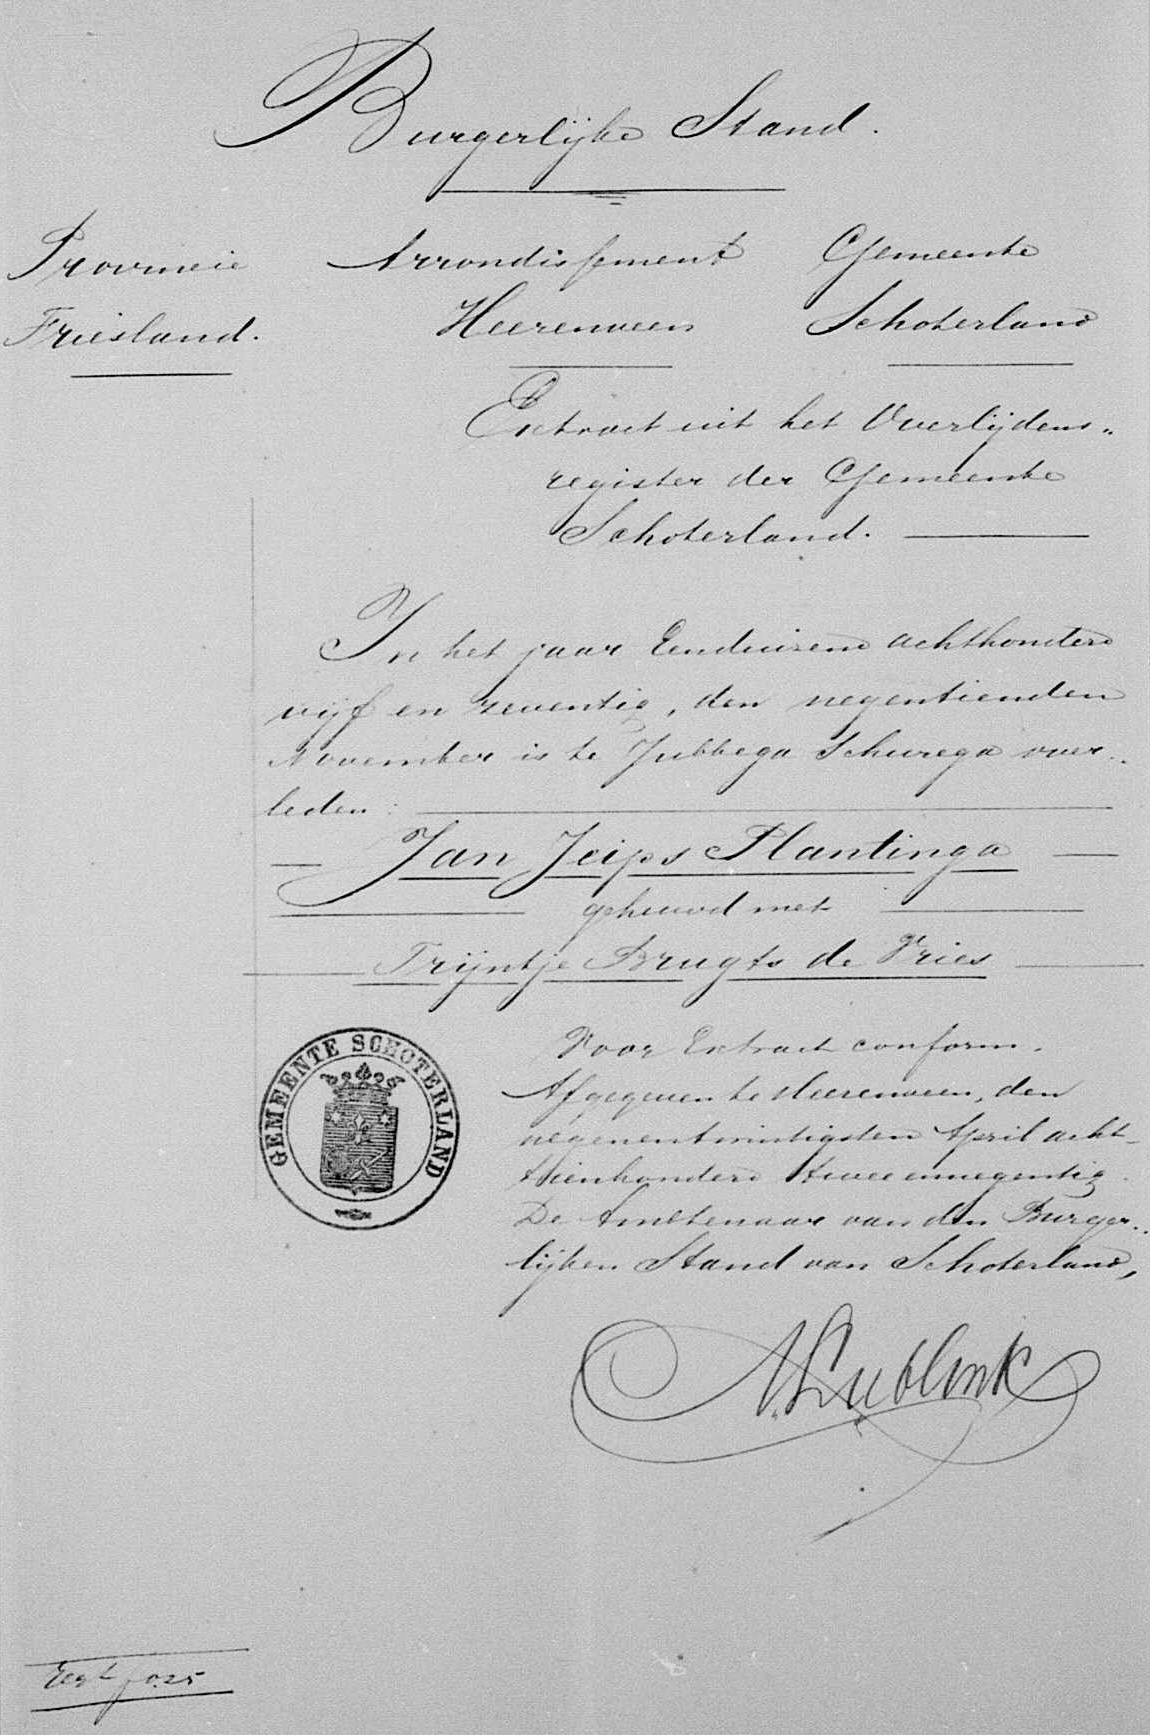 Burgerlijke Stand.
Provincie Arrondissement Gemeente
Friesland. Heerenveen Schoterland
Extract uit het Overlijdens-
register der Gemeente
Schoterland.
In het jaar Eenduizend achthonderd
vijf en zeventig, den negentienden
November is te Jubbega Schurega over-
leden:
Jan Jeips Plantinga
gehuwd met
Trijntje Brugts de Vries
GEMEENTE SCHOTERLAND
Voor Extract conform.
Afgegeven te Heerenveen, den
negenentwintigsten April acht-
tienhonderd tweeennegentig.
De Ambtenaar van den Burger-
lijken Stand van Schoterland,
Lublink
025